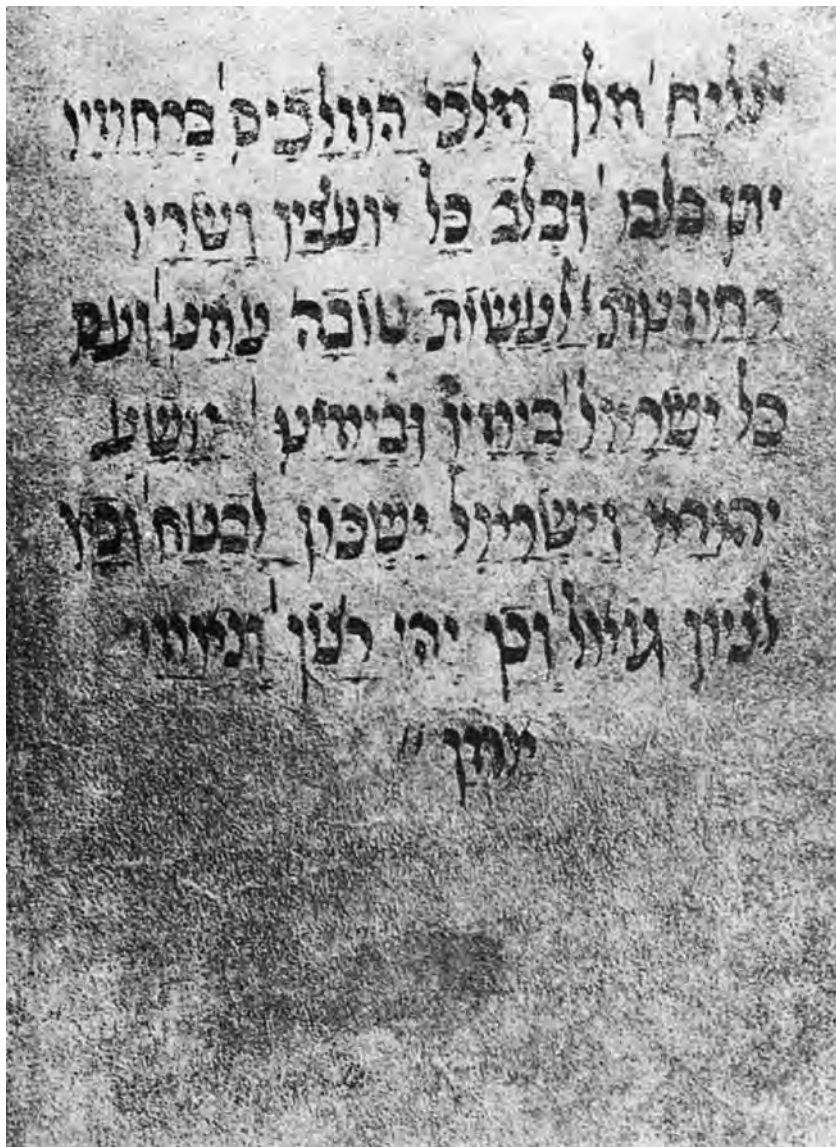 עליה מלך מלכי המלכים ברחמיו
יתן בלבו ובלב כל יועציו ושריו
רחמנות לעשות טובה עמנו ועם
כל ישראל בימיו ובימינו יושע
יהודה וישראל ישכון לבטח ובא
לציון גואל וכן יהי רצון ונאמר
אמן